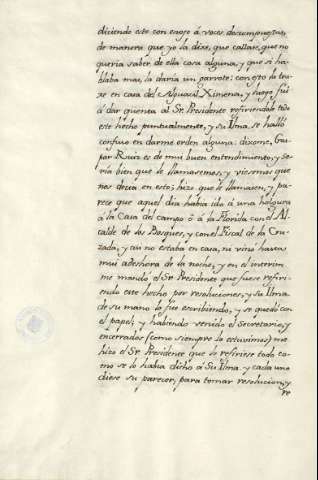 diciendo esto con enojo á voces descompuestas,
de manera que yo la dixe, que callase, que no
queria saber de ella cosa alguna, y que si ha-
blaba mas, la daria un garrote: con esto la dexe
en casa del Alguacil Ximena, y luego fui
á dar quenta al Sr. Presidente refiriendole todo
este hecho puntualmente, y su Ilma. se halló
confuso en darme orden alguna: dixome, Gas-
par Ruiz es de mui buen entendimiento, y se-
ria bien que le llamaremos, y viesemos que
nos decia en esto; hizo que le llamasen, y pa-
rece que aquel dia habia ido á una holgura
á la Casa del campo ó á la Florida con el Al-
calde de los Bosques, y con el Fiscal de la Cru-
zada, y asi no estaba en casa, ni vino hasta
mui adeshora de la noche, y en el interin
me mandó el Sr. Presidente que fuese refiri-
endo este hecho por resoluciones, y su Ilma.
de su mano lo fue escribiendo, y se quedo con
el papel; y habiendo venido el Secretario, y
encerrados (como siempre lo estuvimos) me
hizo el Sr. Presidente que lo refiriese todo co-
mo se lo habia dicho á Su Ilma. y cada uno
diese su parecer, para tomar resolucion, y
re